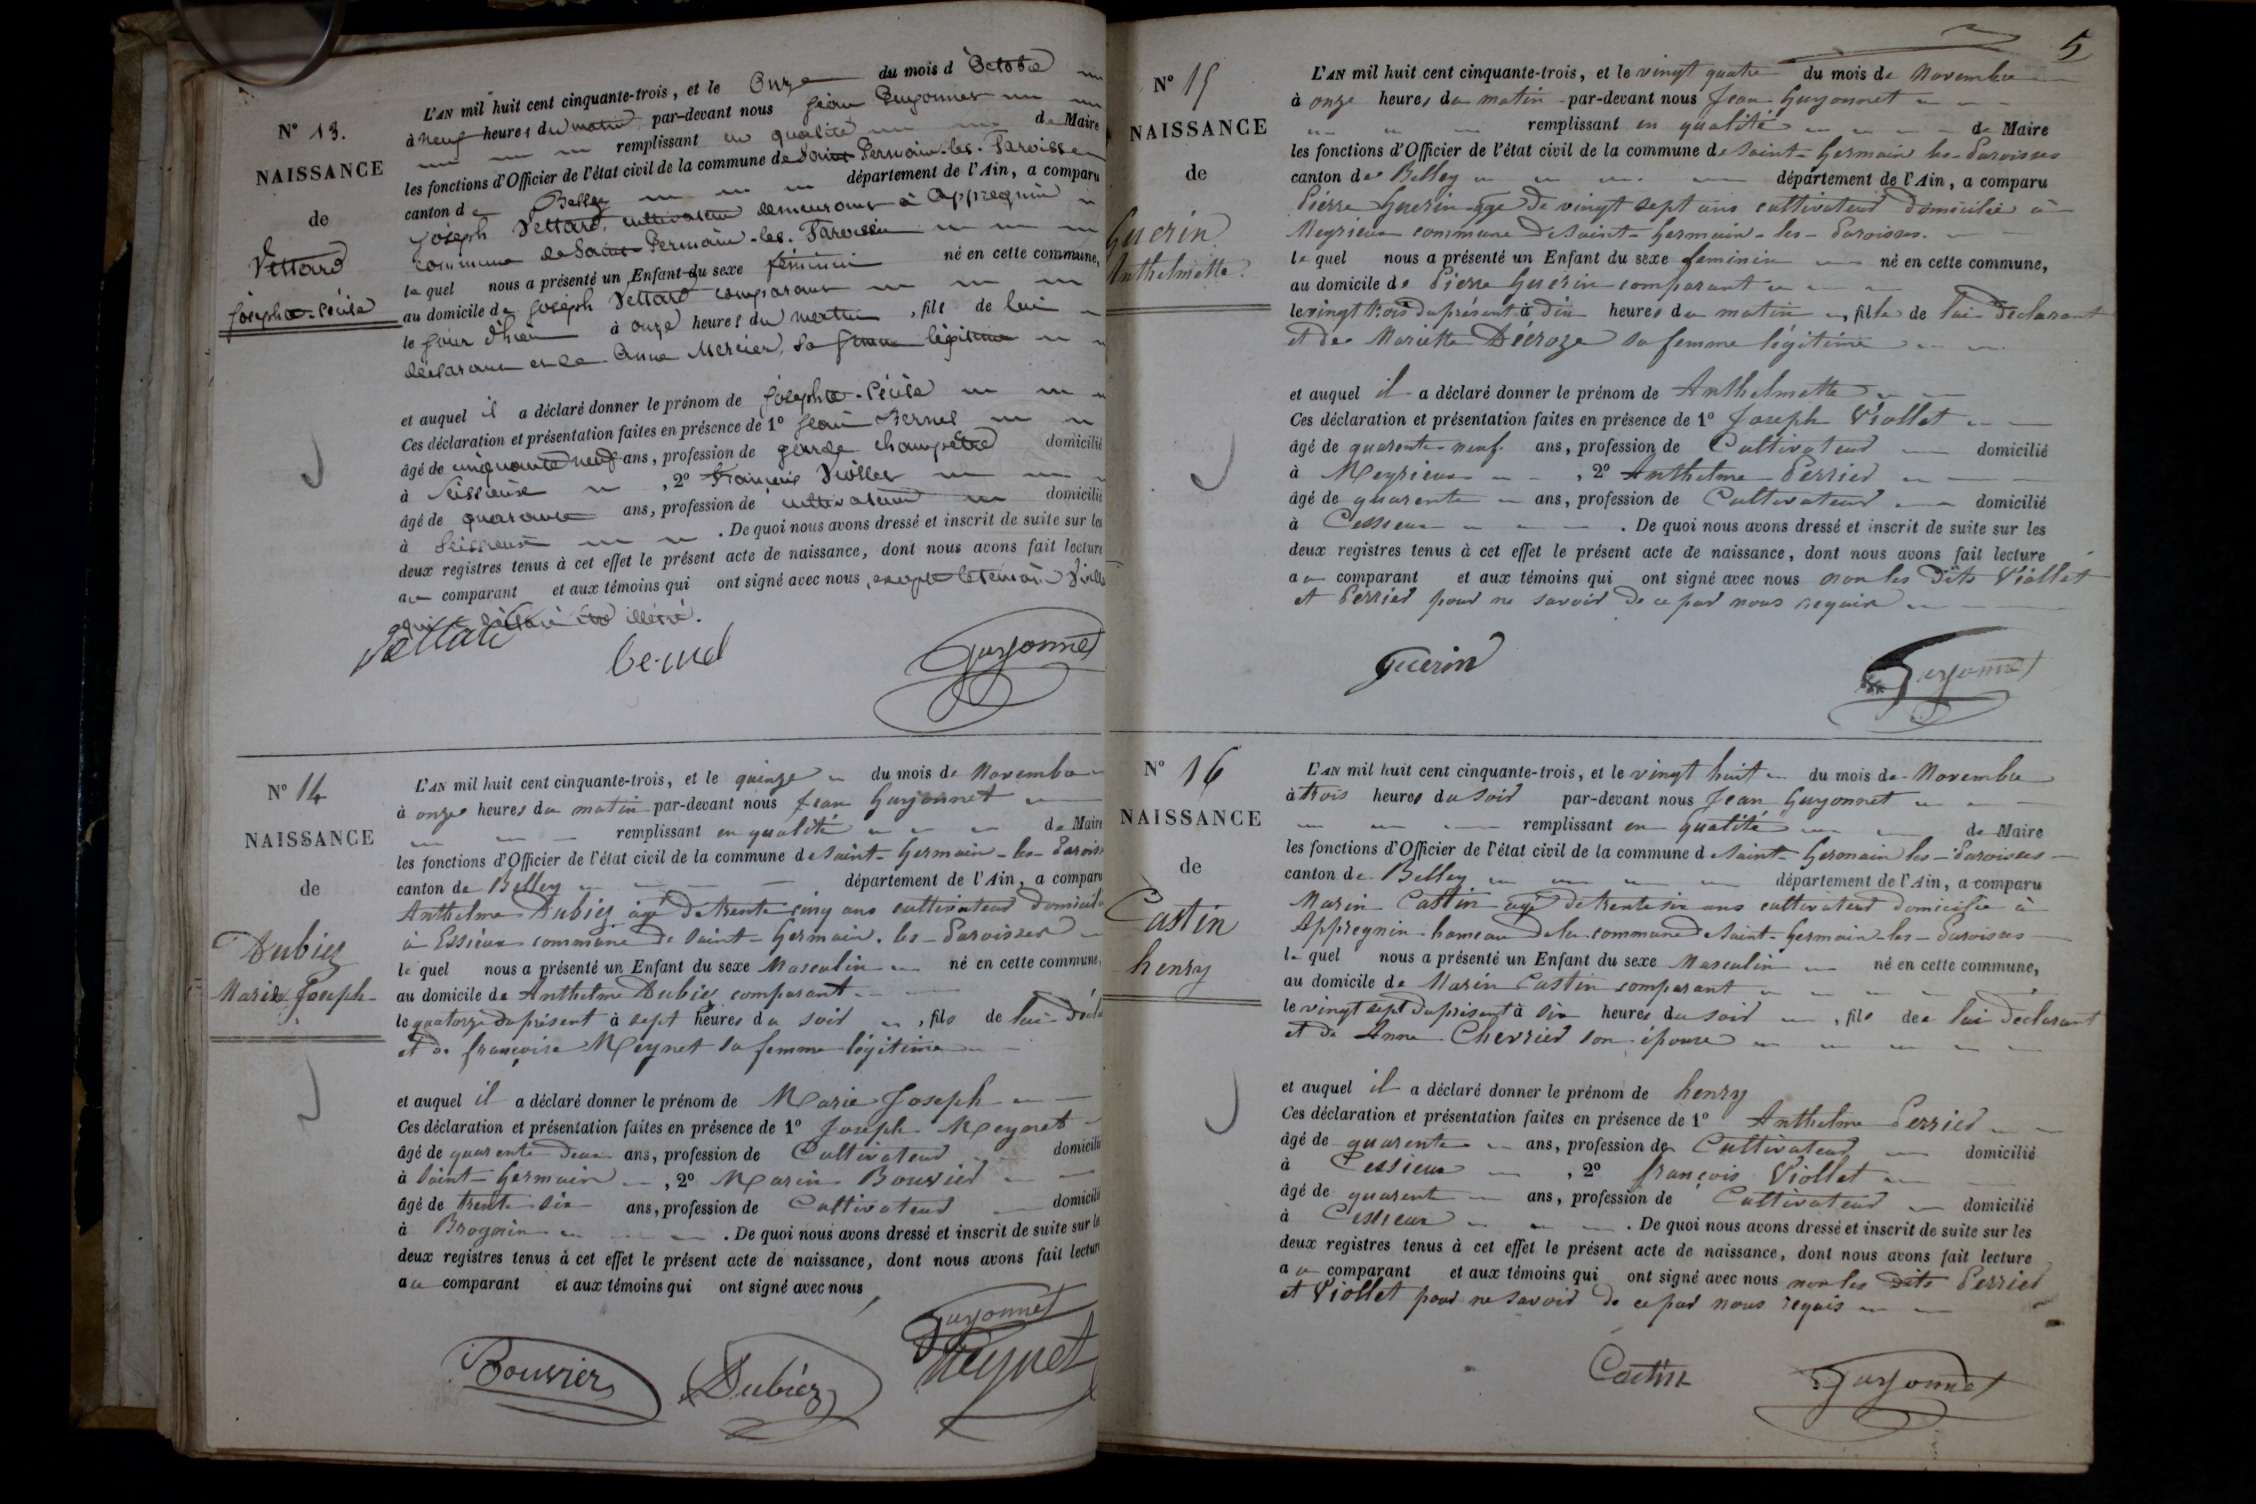 N° 13.
NAISSANCE
de
Vettard
Josephte-Cécile
L'AN mil huit cent cinquante-trois, et le Onze du mois d'Octobre
à neuf heures du matin par-devant nous Jean Guyonnet
remplissant en qualité de Maire
les fonctions d'Officier de l'état civil de la commune de Saint Germain-les-Paroisses
canton de Belley département de l'Ain, a comparu
Joseph Vettard, cultivateur demeurant à Appregnin
commune de Saint Germain-les-Paroisses
lequel nous a présenté un Enfant du sexe féminin né en cette commune,
au domicile de Joseph Vettard comparant
le jour d'hier à onze heures du matin, fille de lui
déclarant et de Anne Mercier, sa femme légitime
et auquel il a déclaré donner le prénom de Josephte-Cécile
Ces déclaration et présentation faites en présence de 1° Jean Bernel
âgé de cinquante neuf ans, profession de garde champêtre domicilié
à , 2° François Viollet
âgé de quarante ans, profession de cultivateur domicilié
à . De quoi nous avons dressé et inscrit de suite sur les
deux registres tenus à cet effet le présent acte de naissance, dont nous avons fait lecture
au comparant et aux témoins qui ont signé avec nous, excepté le témoin Viollet
qui a déclaré être illétré.
Vettard
Guyonnet
N° 14
NAISSANCE
de
Dubiez
Marie Joseph
L'AN mil huit cent cinquante-trois, et le quinze du mois de Novembre
à onze heures du matin par-devant nous Jean Guyonnet
remplissant en qualité de Maire
les fonctions d'Officier de l'état civil de la commune de Saint-Germain-les-Paroisses
canton de Belley département de l'Ain, a comparu
Anthelme Dubiez âgé de trente cinq ans cultivateur domicilié
à Essieux commune de Saint-Germain-les-Paroisses
lequel nous a présenté un Enfant du sexe Masculin né en cette commune,
au domicile de Anthelme Dubiez comparant
le quatorze du présent à sept heures du soir, fils de lui décla
et de françoise Meynet sa femme légitime
et auquel il a déclaré donner le prénom de Marie Joseph
Ces déclaration et présentation faites en présence de 1° Joseph Meynet
âgé de quarente deux ans, profession de Cultivateur domicilié
à Saint-Germain, 2° Marin Bouvier
âgé de trente six ans, profession de Cultivateur domicilié
à Brognin. De quoi nous avons dressé et inscrit de suite sur les
deux registres tenus à cet effet le présent acte de naissance, dont nous avons fait lecture
au comparant et aux témoins qui ont signé avec nous,
Guyonnet
Bouvier Dubiez Meynet
5
N° 15
NAISSANCE
de
Guerin
Anthelmette
L'AN mil huit cent cinquante-trois, et le vingt quatre du mois de Novembre
à onze heures du matin par-devant nous Jean Guyonnet
remplissant en qualité de Maire
les fonctions d'Officier de l'état civil de la commune de Saint-Germain les-Paroisses
canton de Belley département de l'Ain, a comparu
Pierre Guerin âge de vingt sept ans cultivateur domicilié à
Meyrieux commune de Saint-Germain-les-Paroisses.
lequel nous a présenté un Enfant du sexe feminin né en cette commune,
au domicile de Pierre Guérin comparant
le vingt trois du présent à dix heures du matin, fille de lui déclarant
et de Mariette Décroze sa femme légitime
et auquel il a déclaré donner le prénom de Anthelmette
Ces déclaration et présentation faites en présence de 1° Joseph Viollet
âgé de quarente-neuf ans, profession de Cultivateur domicilié
à Meyrieux, 2° Anthelme Perrier
âgé de quarente ans, profession de Cultivateur domicilié
à Cessieux. De quoi nous avons dressé et inscrit de suite sur les
deux registres tenus à cet effet le présent acte de naissance, dont nous avons fait lecture
au comparant et aux témoins qui ont signé avec nous non les dits Viollet
et Perrier pour ne savoir de ce par nous requis
Guerin
Guyonnet
N° 16
NAISSANCE
de
Castin
henry
L'AN mil huit cent cinquante-trois, et le vingt huit du mois de Novembre
à trois heures du soir par-devant nous Jean Guyonnet
remplissant en qualité de Maire
les fonctions d'Officier de l'état civil de la commune de Saint-Germain les-Paroisses
canton de Belley département de l'Ain, a comparu
Marin Castin âgé de trente six ans cultivateur domicilié à
Appregnin hameau de la commune de Saint-Germain-les-Paroisses
lequel nous a présenté un Enfant du sexe Masculin né en cette commune,
au domicile de Marin Castin comparant
le vingt sept du présent à six heures du soir, fils de lui déclarant
et de Anne Chevrier son épouse
et auquel il a déclaré donner le prénom de henry
Ces déclaration et présentation faites en présence de 1° Anthelme Perrier
âgé de quarente ans, profession de Cultivateur domicilié
à Cessieux, 2° françois Viollet
âgé de quarente ans, profession de Cultivateur domicilié
à Cessieux. De quoi nous avons dressé et inscrit de suite sur les
deux registres tenus à cet effet le présent acte de naissance, dont nous avons fait lecture
au comparant et aux témoins qui ont signé avec nous non les dits Perrier
et Viollet pour ne savoir de ce par nous requis
Castin
Guyonnet